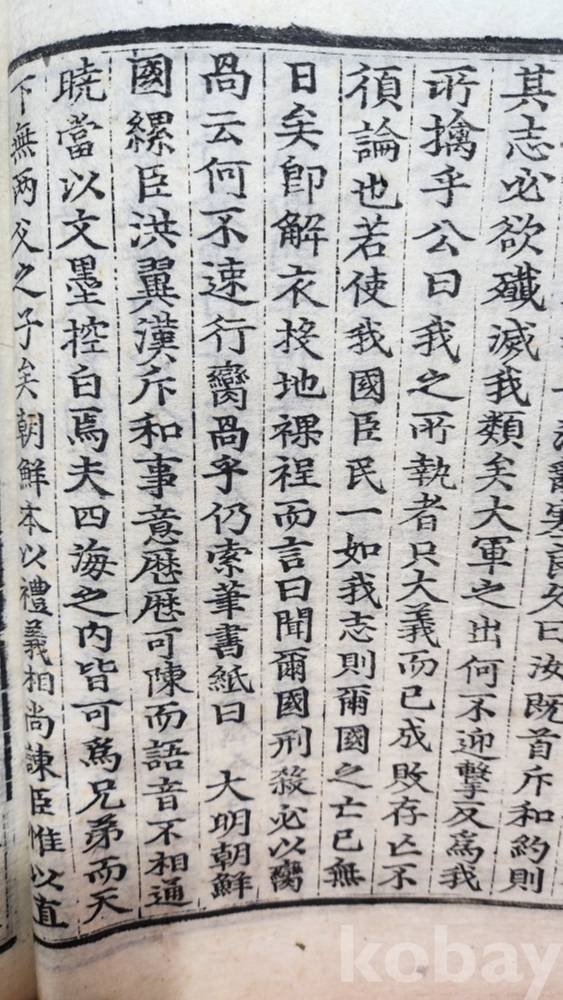 其志必欲殲滅我類矣大軍之出何不迎擊反爲我
所擒乎公曰我之所執者只大義而已成敗存亡不
須論也若使我國臣民一如我志則爾國之亡已無
日矣卽解衣投地裸裎而言曰聞爾國刑殺必以臠
咼云何不速行臠咼乎仍索筆書紙曰 大明朝鮮
國縲臣洪翼漢斥和事意歷歷可陳而語音不相通
曉當以文墨控白焉夫四海之內皆可爲兄弟而天
下無兩父之子矣朝鮮本以禮義相尙諫臣惟以直
kobay